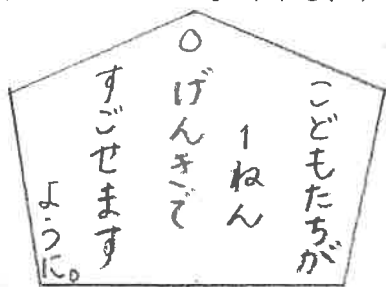 こどもたちが
1ねん
げんきで
すごせます
ように。